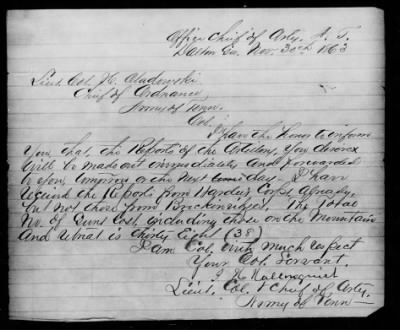 Office Chief of Arty, A. T.
Dalton Ga. Nov. 30th 1863
Lieut. Col. H. Oladowski
Chief of Ordnance,
Army of Tenn.
Col.
I have the honor to inform
You, that the Reports of the Artillery, You desire
Will be made out immediately and forwarded
to you, tomorrow or the next coming day. I have
received the Reports from Hardee's Corps already,
but not those from Breckinridge's. The Total
No. of Guns lost, including those on the Mountain
and what is thirty Eight (38)
I am Col. with much respect
Your Obt. Servant,
J H Hallonquist
Lieut. Col. & Chief of Arty.
Army of Tenn